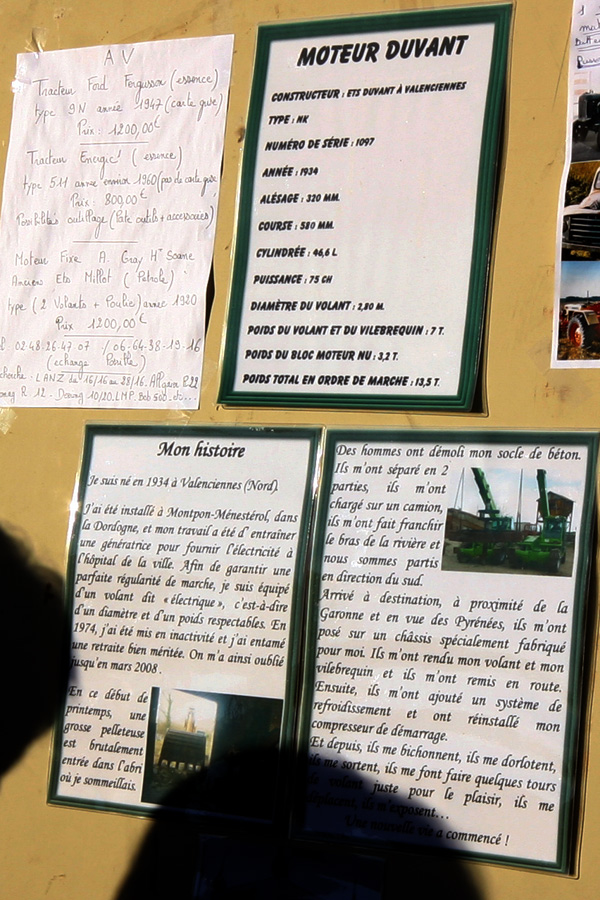 A V
Tracteur Ford Fergusson (essence)
type 9N année 1947 (carte grise)
Prix : 1200,00€
Tracteur Energic ! (essence)
type 511 année environ 1960 (pas de carte grise
Prix : 800,00€
Possibilités outillage (Porte outils + accessoires)
Moteur Fixe A. Gray Hte Saone
Anciens Ets Millot (Petrole)
type (2 Volants + Poulie) année 1920
Prix 1200,00€
02 48.26.47.07 / 06-64-38-19-16
(echange Possible)
cherche : LANZ de 16/16 au 28/16. Allgaier R.22
R 12. 10/20. LMP. Bob
MOTEUR DUVANT
CONSTRUCTEUR : ETS DUVANT À VALENCIENNES
TYPE : NK
NUMÉRO DE SÉRIE : 1097
ANNÉE : 1934
ALÉSAGE : 320 MM.
COURSE : 580 MM.
CYLINDRÉE : 46,6 L.
PUISSANCE : 75 CH
DIAMÈTRE DU VOLANT : 2,80 M.
POIDS DU VOLANT ET DU VILEBREQUIN : 7 T.
POIDS DU BLOC MOTEUR NU : 3,2 T.
POIDS TOTAL EN ORDRE DE MARCHE : 13,5 T.
Mon histoire
Je suis né en 1934 à Valenciennes (Nord).
J'ai été installé à Montpon-Ménestérol, dans
la Dordogne, et mon travail a été d' entraîner
une génératrice pour fournir l'électricité à
l'hôpital de la ville. Afin de garantir une
parfaite régularité de marche, je suis équipé
d'un volant dit « électrique », c'est-à-dire
d'un diamètre et d'un poids respectables. En
1974, j'ai été mis en inactivité et j'ai entamé
une retraite bien méritée. On m'a ainsi oublié
jusqu'en mars 2008.
En ce début de
printemps, une
grosse pelleteuse
est brutalement
entrée dans l'abri
où je sommeillais.
Des hommes ont démoli mon socle de béton.
Ils m'ont séparé en 2
parties, ils m'ont
chargé sur un camion,
ils m'ont fait franchir
le bras de la rivière et
nous sommes partis
en direction du sud.
Arrivé à destination, à proximité de la
Garonne et en vue des Pyrénées, ils m'ont
posé sur un châssis spécialement fabriqué
pour moi. Ils m'ont rendu mon volant et mon
vilebrequin et ils m'ont remis en route.
Ensuite, ils m'ont ajouté un système de
refroidissement et ont réinstallé mon
compresseur de démarrage.
Et depuis, ils me bichonnent, ils me dorlotent,
ils me sortent, ils me font faire quelques tours
de volant juste pour le plaisir, ils me
déplacent, ils m'exposent…
Une nouvelle vie a commencé !